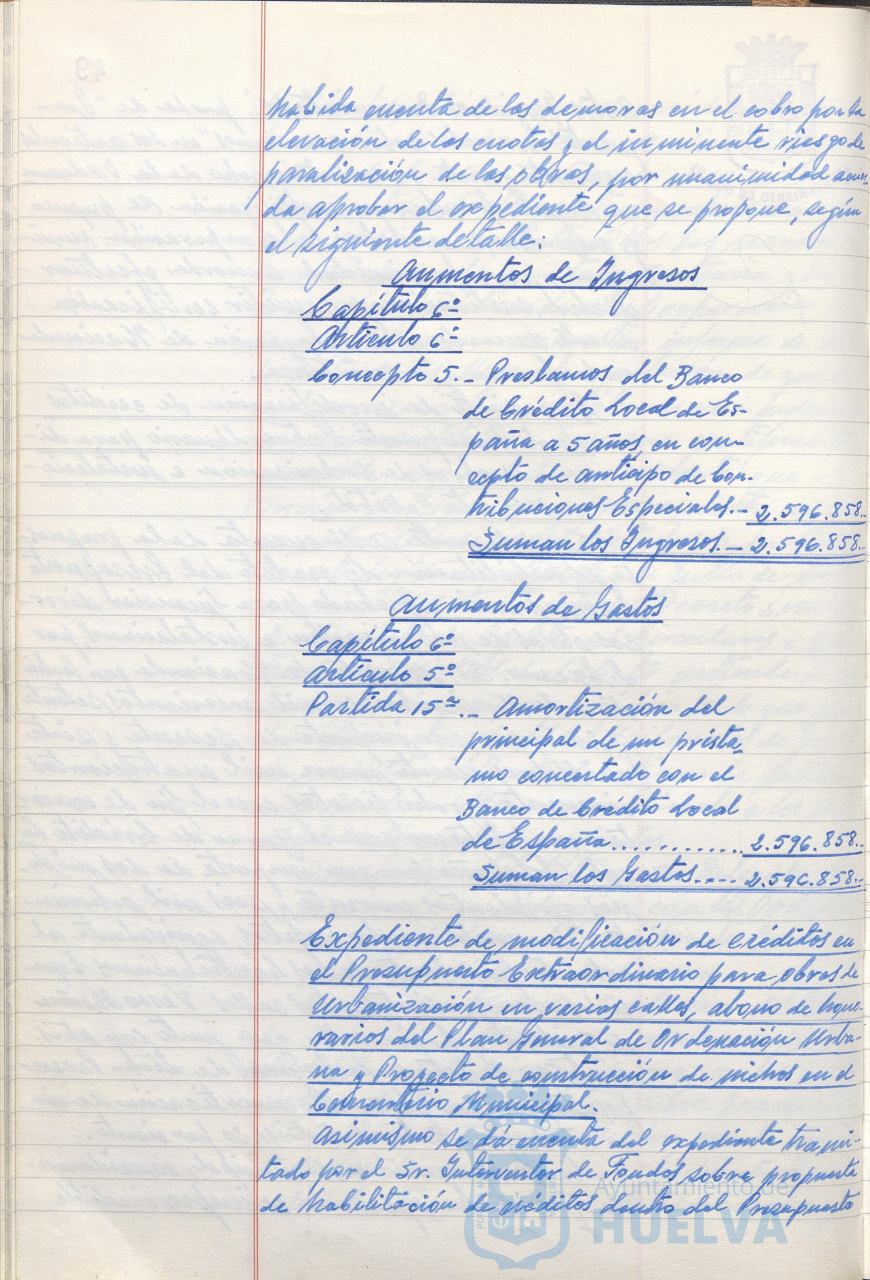 habida cuenta de las demoras en el cobro por la
elevación de las cuotas y el inminente riesgo de
paralización de las obras, por unanimidad acuer-
da aprobar el expediente que se propone, según
el siguiente detalle:
Aumentos de Ingresos
Capítulo 6º
Artículo 6º
Concepto 5.- Prestamos del Banco
de Crédito Local de Es-
paña a 5 años, en con-
cepto de anticipo de Con-
tribuciones Especiales.- 2.596.858.-
Suman los Ingresos.- 2.596.858.-
Aumentos de Gastos
Capítulo 6º
Artículo 5º
Partida 15ª.- Amortización del
principal de un présta-
mo concertado con el
Banco de Crédito Local
de España............ 2.596.858.-
Suman los Gastos.--- 2.596.858.-
Expediente de modificación de créditos en
el Presupuesto Extraordinario para obras de
Urbanización en varias calles, abono de hono-
rarios del Plan General de Ordenación Urba-
na y Proyecto de construcción de nichos en el
Cementerio Municipal.
Asimismo se dá cuenta del expediente trami-
tado por el Sr. Interventor de Fondos sobre propuesta
de habilitación de créditos dentro del Presupuesto
Ayuntamiento de
HUELVA